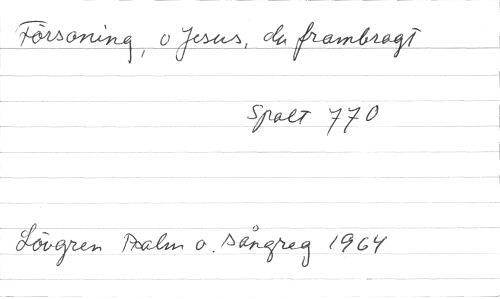 Försoning, o Jesus, du frambragt
Spalt 770
Lövgren Psalm o. Sångreg 1964